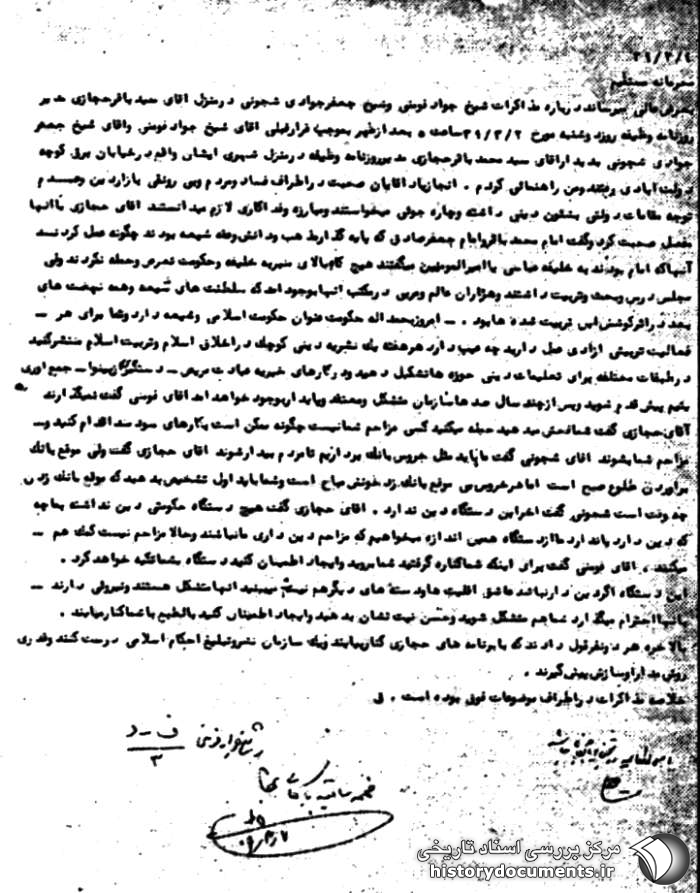 ۳۹/۳/٤
محرمانه مستقیم
بعرض عالی میرساند درباره مذاکرات شیخ جواد فومنی و شیخ جعفر جوادی شجونی در منزل آقای سید باقر حجازی مدیر
روزنامه وظیفه روز دوشنبه مورخ ۳۹/۳/۲ ساعت ۵ بعد از ظهر بموجب قرار قبلی آقای شیخ جواد فومنی و آقای شیخ جعفر
جوادی شجونی بدیدار آقای سید محمد باقر حجازی مدیر روزنامه وظیفه در منزل شهری ایشان واقع در خیابان برق کوچه
دولت آبادی رفتند و من راهنمائی کردم . انجا زیاد اقایان صحبت در اطراف فساد مردم و بی رونقی بازار دین و عدم
توجه مقامات دولتی بشئون دینی داشته و چاره جوئی میخواستند و مبارزه و فداکاری لازم میدانستند آقای حجازی با آنها
مفصل صحبت کرد و گفت امام محمد باقر و امام جعفر صادق که پایه گذار مذهب و دانش و فقه شیعه بودند چگونه عمل کردند
آنها که امام بودند به خلیفه عباسی یا امیرالمومنین میگفتند هیچ گاه بالای منبر به خلیفه و حکومت تعرض و حمله نکردند ولی
مجلس درس و بحث و تربیت داشتند و هزاران عالم و مربی در مکتب آنها بوجود آمد که سلطنت های شیعه و همه نهضت های
بعد در اثر کوشش این تربیت شده ها بود . ــ امروز بحمد اله حکومت عنوان حکومت اسلامی و شیعه دارد و شما برای هر ــ
فعالیت تربیتی آزادی عمل دارید چه عیب دارد هر هفته یک نشریه دینی کوچک در اخلاق اسلام و تربیت اسلام منتشر کنید
در طبقات مختلفه برای تعلیمات دینی حوزه ها تشکیل دهید و در کارهای خیریه عیادت مریض ــ دستگیری بینوا ــ جمع آوری
یتیم پیش قدم شوید و پس از چند سال صدها سازمان متشکل و معتقد و پایدار بوجود خواهد آمد آقای فومنی گفت نمیگذارند
آقای حجازی گفت شما فحش میدهید حمله میکنید کسی مزاحم شما نیست چگونه ممکن است بکارهای سودمند اقدام کنید و ــ
مزاحم شما بشوند آقای شجونی گفت ما باید مثل خروس بانک برداریم تا مردم بیدار شوند آقای حجازی گفت ولی موقع بانک
برآوردن طلوع صبح است اما هر خروس بی موقع بانک زد خونش مباح است و شما باید اول تشخیص بدهید که موقع بانک زدن
چه وقت است شجونی گفت اخر این دستگاه دین ندارد . آقای حجازی گفت هیچ دستگاه حکومتی دین نداشت بما چه
که دین دارد یا ندارد ما از دستگاه همین اندازه میخواهیم که مزاحم دین داری ما نباشند و حالا مزاحم نیست کمک هم ــ
میکند ، آقای فومنی گفت برای اینکه شما کناره گرفتید شما بروید و ایجاد اطمینان کنید دستگاه بشما تکیه خواهد کرد .
این دستگاه اگر دین دار نباشد عاشق اقلیت ها و دسته های دیگر هم نیست میبینید آنها متشکل هستند و نیروئی دارند ــ
بانها احترام میگذارد شما هم متشکل شوید و حسن نیت نشان بدهید و ایجاد اطمینان کنید بالطبع با شما کنار میایند .
بالاخره هر دو نفر قول دادند که با برنامه های حجازی کنار بیایند و یک سازمان نشر و تبلیغ احکام اسلامی درست کنند و قدری
روش مدارا و سازش پیش گیرند .
خلاصه مذاکرات در اطراف موضوعات فوق بوده است . ق
ف - د
۲
مرکز بررسی اسناد تاریخی
historydocuments.ir